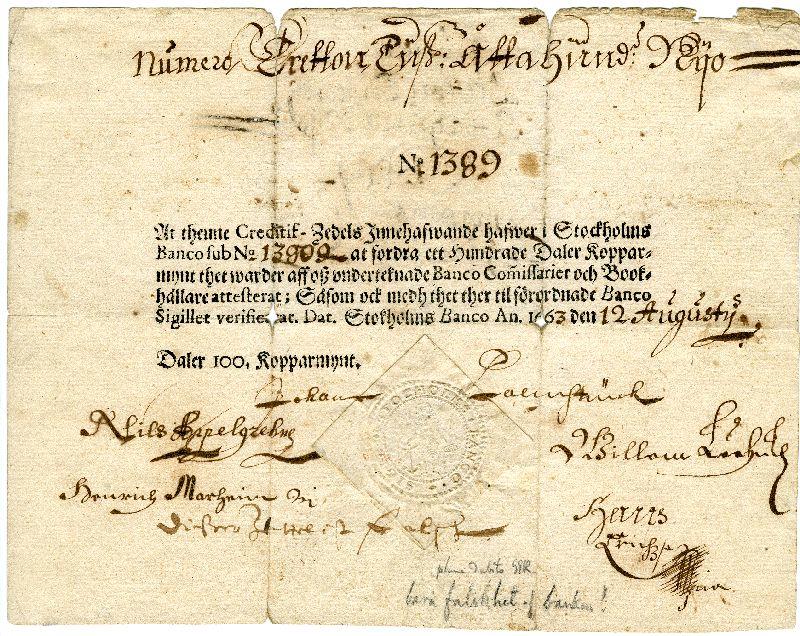 Numero Tretton Tüß: Åtta hünd: Nijo
No 1389
At thenne Creditif-Zedels Innehafwande hafwer i Stockholms
Banco sub No 13809 at fordra ett Hundrade Daler Koppar-
mynt thet warder aff oß underteknade Banco Comissarier och Book-
hållare attesterat; Såsom ock medh thet ther til förordnade Banco
Sigillet verificerat. Dat. Stokholms Banco An. 1663 den 12 Augustij
Daler 100. Kopparmynt.
Johan Palmstruck
Nils Appelgrehn
Henrich Marheim
Hans
bara falskhet af banken!